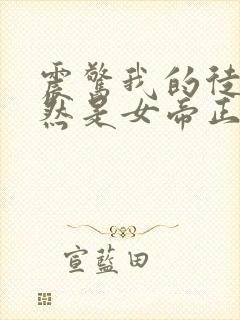 震惊我的徒
然是女帝正
宣蓝田